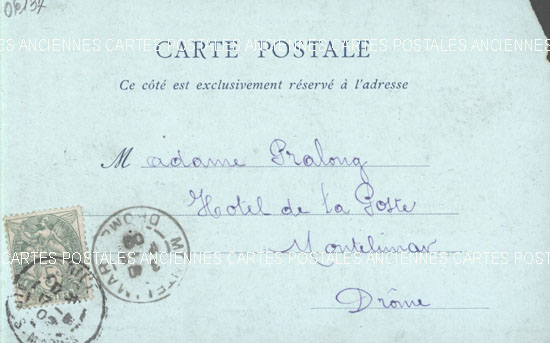 CARTE POSTALE
Ce côté est exclusivement réservé à l'adresse
Madame Pralong
Hotel de la Poste
Montelimar
Drôme
MONTELIMAR
DROME
CARTES POSTALES ANCIENNES CARTES POSTALES ANCIENNES CARTES POSTALES ANCIENNES
CARTES POSTALES ANCIENNES CARTES POSTALES ANCIENNES CARTES POSTALES ANCIENNES